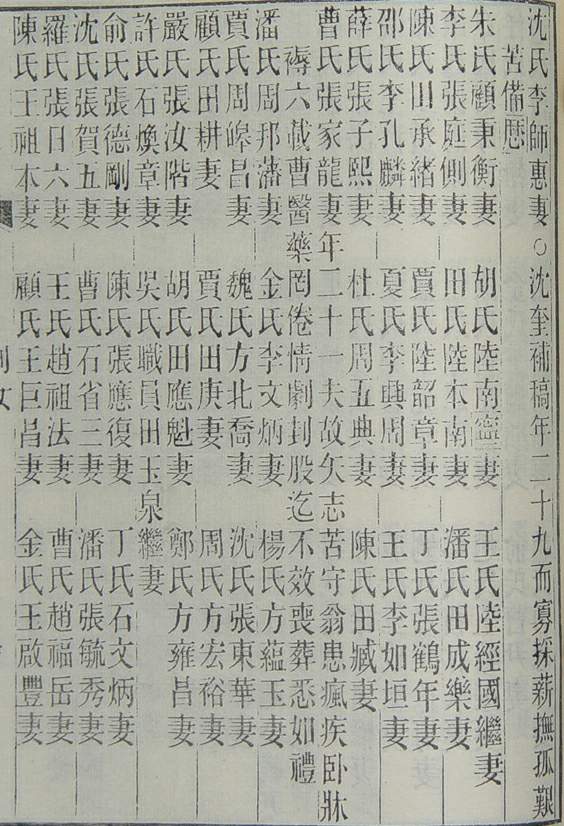 沈氏李師惠妻○沈奎補稿年二十九而寡採薪撫孤艱
苦備歷
朱氏顧秉衡妻 胡氏陸南䆿妻 王氏陸經國繼妻
李氏張庭側妻 田氏陸本南妻 潘氏田成樂妻
陳氏田承緒妻 賈氏陸韶章妻 丁氏張鶴年妻
邵氏李孔麟妻 夏氏李興周妻 王氏李如垣妻
薛氏張子熙妻 杜氏周五典妻 陳氏田臧妻
曹氏張家龍妻年二十一夫故矢志苦守翁患瘋疾卧牀
褥六載曹醫藥罔倦情劇刲股迄不效喪葬悉如禮
潘氏周邦藩妻 金氏李文炳妻 楊氏方蘊玉妻
賈氏周皞昌妻 魏氏方北喬妻 沈氏張東華妻
顧氏田耕妻 賈氏田庚妻 周氏方宏裕妻
嚴氏張汝階妻 胡氏田應魁妻 鄭氏方雍昌妻
許氏石煥章妻 吳氏職員田玉泉繼妻
俞氏張德剛妻 陳氏張應復妻 丁氏石文炳妻
沈氏張賀五妻 曹氏石省三妻 潘氏張毓秀妻
羅氏張日六妻 王氏趙祖法妻 曹氏趙福岳妻
陳氏王祖本妻 顧氏王巨昌妻 金氏王啟豐妻